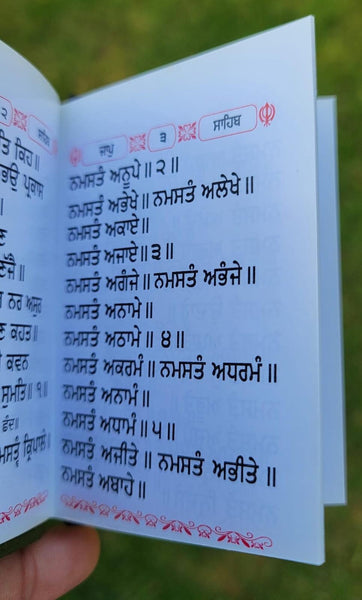 ੨ ਸਾਹਿਬ
ਕਿਹ ॥
ਪ੍ਰਕਾਸ
ਨਰ ਅਸੁਰ
ਕਹਤ ॥
ਕਵਨ
ਸੁਮਤਿ ॥ ੧ ॥
ਛੰਦ ॥
ਕ੍ਰਿਪਾਲੇ
ਜਾਪੁ ੩ ਸਾਹਿਬ
ਨਮਸਤੰ ਅਨੂਪੇ ॥ ੨ ॥
ਨਮਸਤੰ ਅਭੇਖੇ ॥ ਨਮਸਤੰ ਅਲੇਖੇ ॥
ਨਮਸਤੰ ਅਕਾਏ ॥
ਨਮਸਤੰ ਅਜਾਏ ॥ ੩ ॥
ਨਮਸਤੰ ਅਗੰਜੇ ॥ ਨਮਸਤੰ ਅਭੰਜੇ ॥
ਨਮਸਤੰ ਅਨਾਮੇ ॥
ਨਮਸਤੰ ਅਠਾਮੇ ॥ ੪ ॥
ਨਮਸਤੰ ਅਕਰਮੰ ॥ ਨਮਸਤੰ ਅਧਰਮੰ ॥
ਨਮਸਤੰ ਅਨਾਮੰ ॥
ਨਮਸਤੰ ਅਧਾਮੰ ॥ ੫ ॥
ਨਮਸਤੰ ਅਜੀਤੇ ॥ ਨਮਸਤੰ ਅਭੀਤੇ ॥
ਨਮਸਤੰ ਅਬਾਹੇ ॥